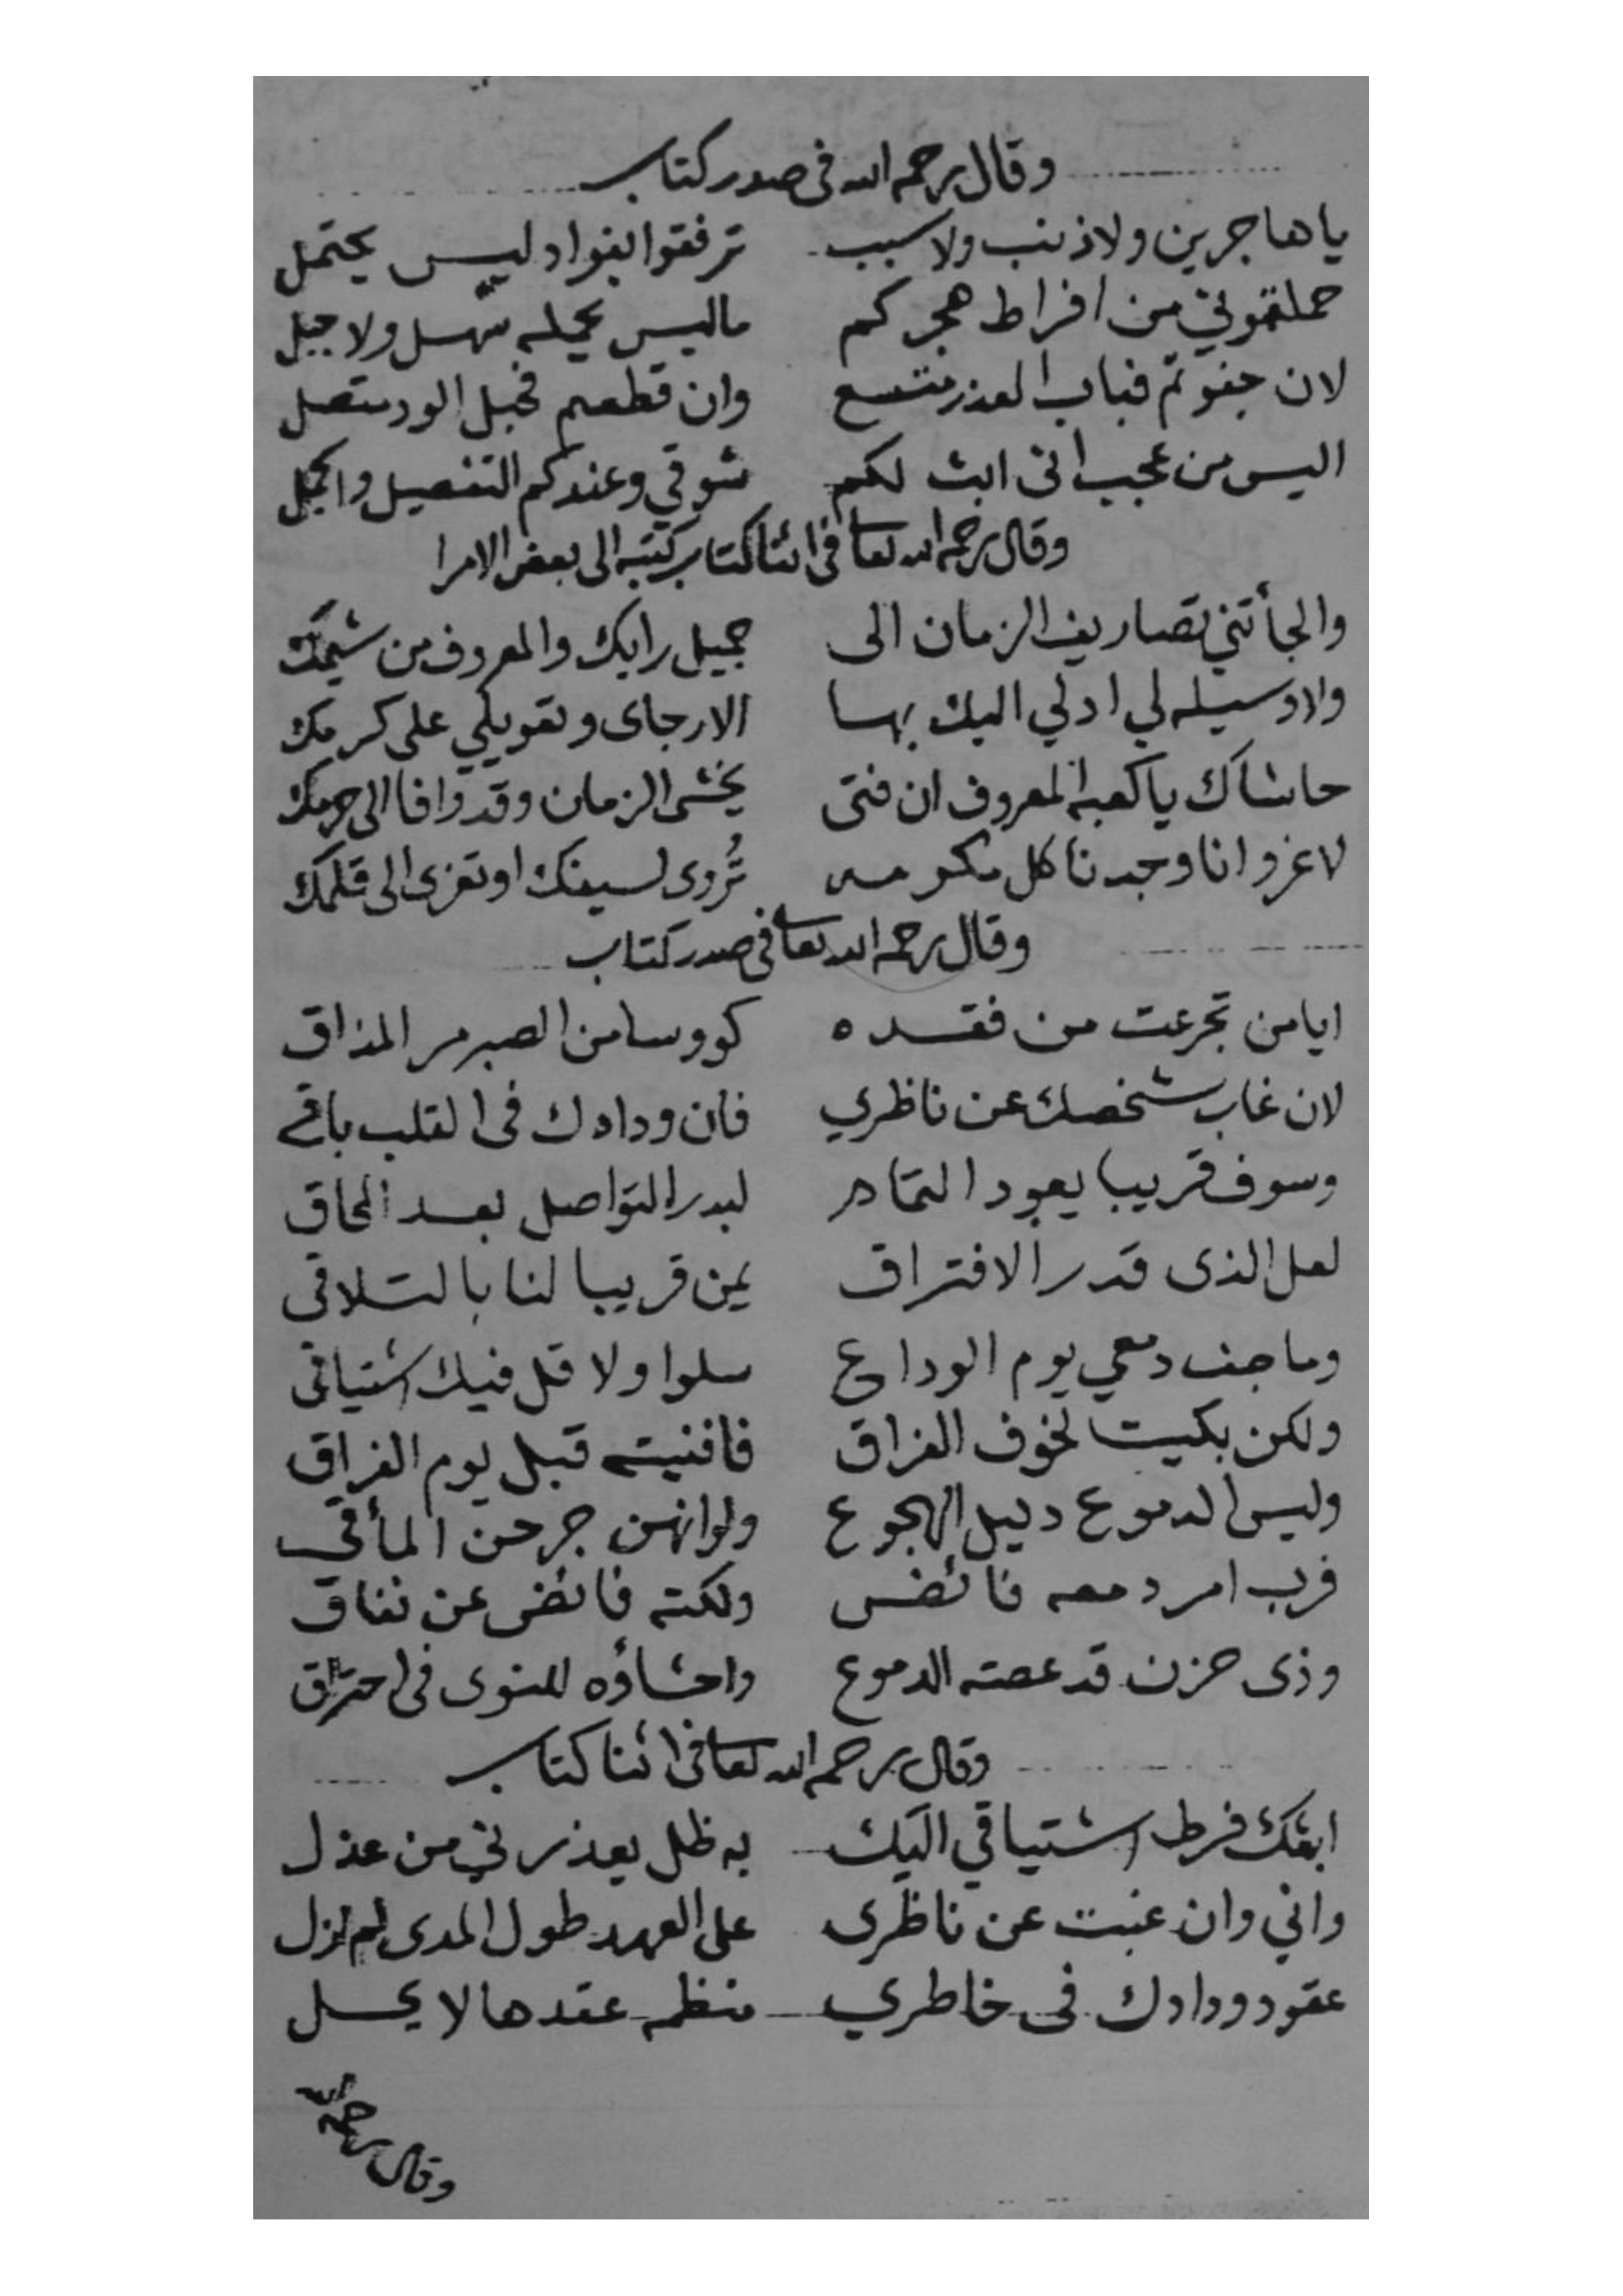 وقال رحمه الله فى صدر كتاب
ياهاجرين ولاذنب ولا سبب ترفقوا بفواد ليس يحتمل
حملتموني من افراط هجركم ماليس يحمله سهل ولا جبل
لان جفوتم فباب العذر متسع وان قطعتم فحبل الود متصل
اليس من عجب انى ابث لكم شوقي وعندكم التفصيل والجمل
وقال رحمه الله تعا فى اثنا كتاب كتبه الى بعض الامرا
والجأتني تصاريف الزمان الى جميل رايك والمعروف من شيمك
ولا وسيله لي ادلي اليك بها الا رجاى وتعويلي على كرمك
حاشاك ياكعبة المعروف ان فتى يخشى الزمان وقد وافا الى حرمك
لاغرو انا وجدنا كل مكرمه تُروى لسيفك او تعزى الى قلمك
وقال رحمه الله تعا فى صدر كتاب
ايامن تجرعت من فقده كووسا من الصبر مر المذاق
لان غاب شخصك عن ناظري فان ودادك فى القلب باقى
وسوف قريبا يعود التمام لبدر التواصل بعد المحاق
لعل الذى قدر الافتراق يمن قريبا لنا بالتلاقى
وما جف دمعي يوم الوداع سلوا ولا قل فيك اشتياقى
ولكن بكيت لخوف الفراق فافنيته قبل يوم الفراق
وليس الدموع دليل الهجوع ولوانهن جرحن المأقي
فرب امر دمعه فائض ولكنه فائض عن نفاق
وذى حزن قد عصته الدموع واحشاؤه للنوى فى احتراق
وقال رحمه الله تعا فى اثنا كتاب
ابثك فرط اشتياقي اليك به ظل يعذرني من عذل
واني وان غبت عن ناظرى على العهد طول المدى لم ازل
عقود ودادك فى خاطري منظمه عقدها لا يحل
وقال رحمه الله